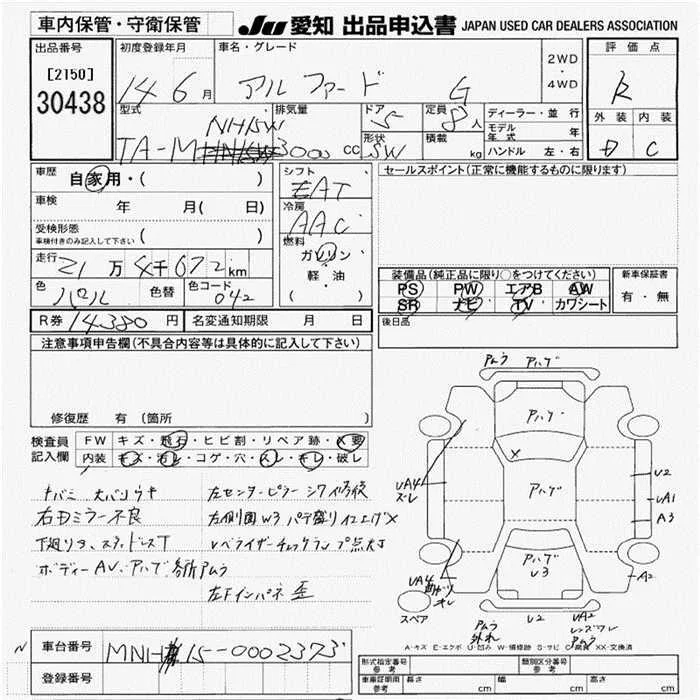 車内保管・守衛保管
JU 愛知 出品申込書 JAPAN USED CAR DEALERS ASSOCIATION
出品番号
[2150]
30438
初度登録年月
14 6月
車名・グレード
アルファード G
2WD
・
4WD
評価点
R
外装 内装
D C
型式
NH15W
TA-M
排気量
3000 cc
ドア
5
形状
SW
定員
8人
積載
kg
ディーラー・並行
モデル年式 年
ハンドル 左・右
車歴
自家用・( )
車検
年 月( 日)
受検形態
車検付きのみ記入して下さい ( )
走行
21万4千672km
色
パール
色替
色コード
042
シフト
EAT
冷房
AAC
燃料
ガソリン
軽・油
( )
セールスポイント(正常に機能するものに限ります)
装備品(純正品に限り○をつけてください)
PS PW エアB AW
SR ナビ TV カワシート
新車保証書
有・無
後日品
R券 14,380 円
名変通知期限 月 日
注意事項申告欄(不具合内容等は具体的に記入して下さい)
修復歴 有(箇所 )
検査員記入欄
FW キズ・飛石・ヒビ割・リペア跡・X要
内装 キズ・汚レ・コゲ・穴・スレ・キレ・破レ
右Dミラー不良
下廻りサ、スタッドレスT
ボディーAV、アハゲ各所アムラ
左センターピラーシワ修復
左側面W3 パテ盛り仕上ゲX
レベライザーチェックランプ点灯
左Fインパネ歪
アムラ アハゲ
アハゲ
X
アハゲ
アハゲ
U3
UA4
ズレ
UA4
曲がり
オレ
U2
UA1
A3
A2
スペア
アムラ
外れ
U2
UA2
レンズワレ
アムラ
A-キズ E-エクボ U-凹み W-補修跡 S-サビ C-腐食 XX-交換済
N
車台番号
MNH15-0002373
登録番号
形式指定番号
参考
類別区分番号
参考
車庫証明用
参考
長さ cm
幅 cm
高さ cm